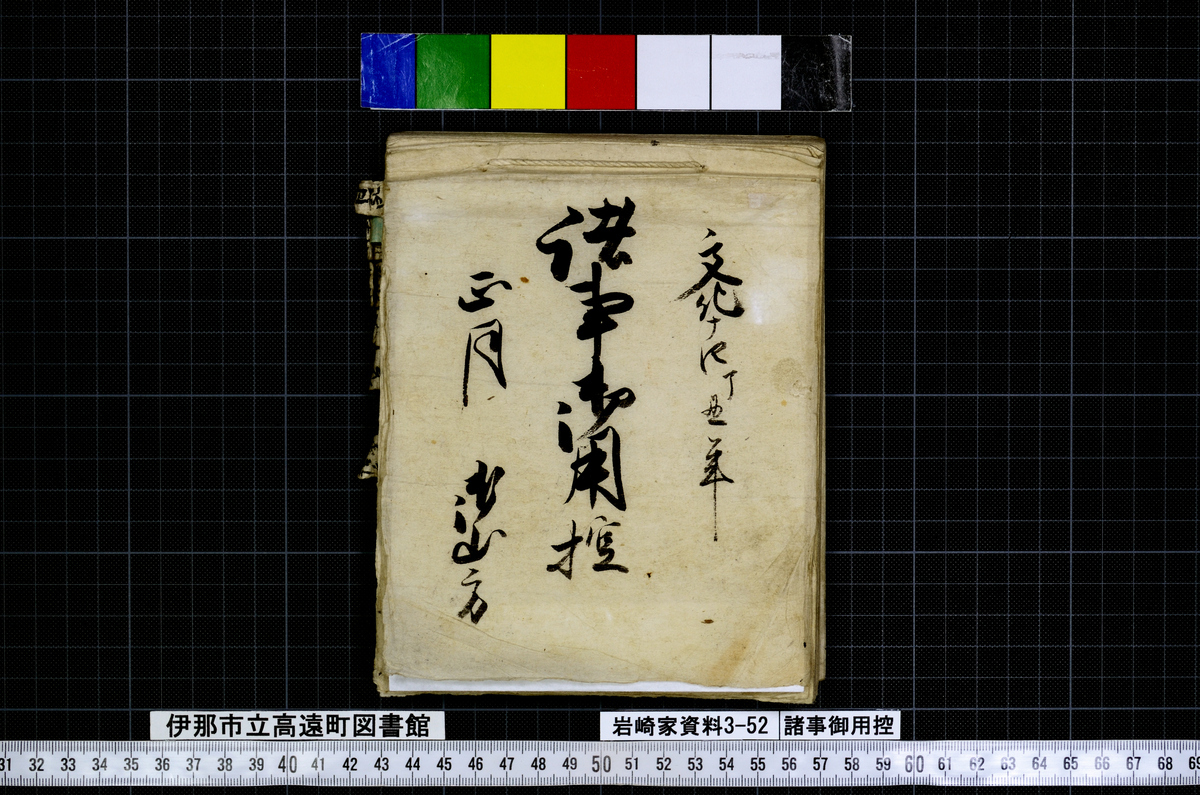 文化十四丁丑年
諸事御用控
正月 御山方
伊那市立高遠町図書館
岩崎家資料3-52
諸事御用控
31 32 33 34 35 36 37 38 39 40 41 42 43 44 45 46 47 48 49 50 51 52 53 54 55 56 57 58 59 60 61 62 63 64 65 66 67 68 69